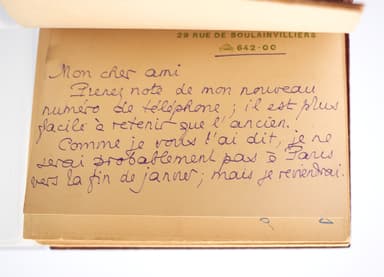 29 RUE DE BOULAINVILLIERS
642-00
Mon cher ami
Prenez note de mon nouveau
numéro de téléphone ; il est plus
facile à retenir que l'ancien.
Comme je vous l'ai dit, je ne
serai probablement pas à Paris
vers la fin de janvier ; mais je reviendrai.